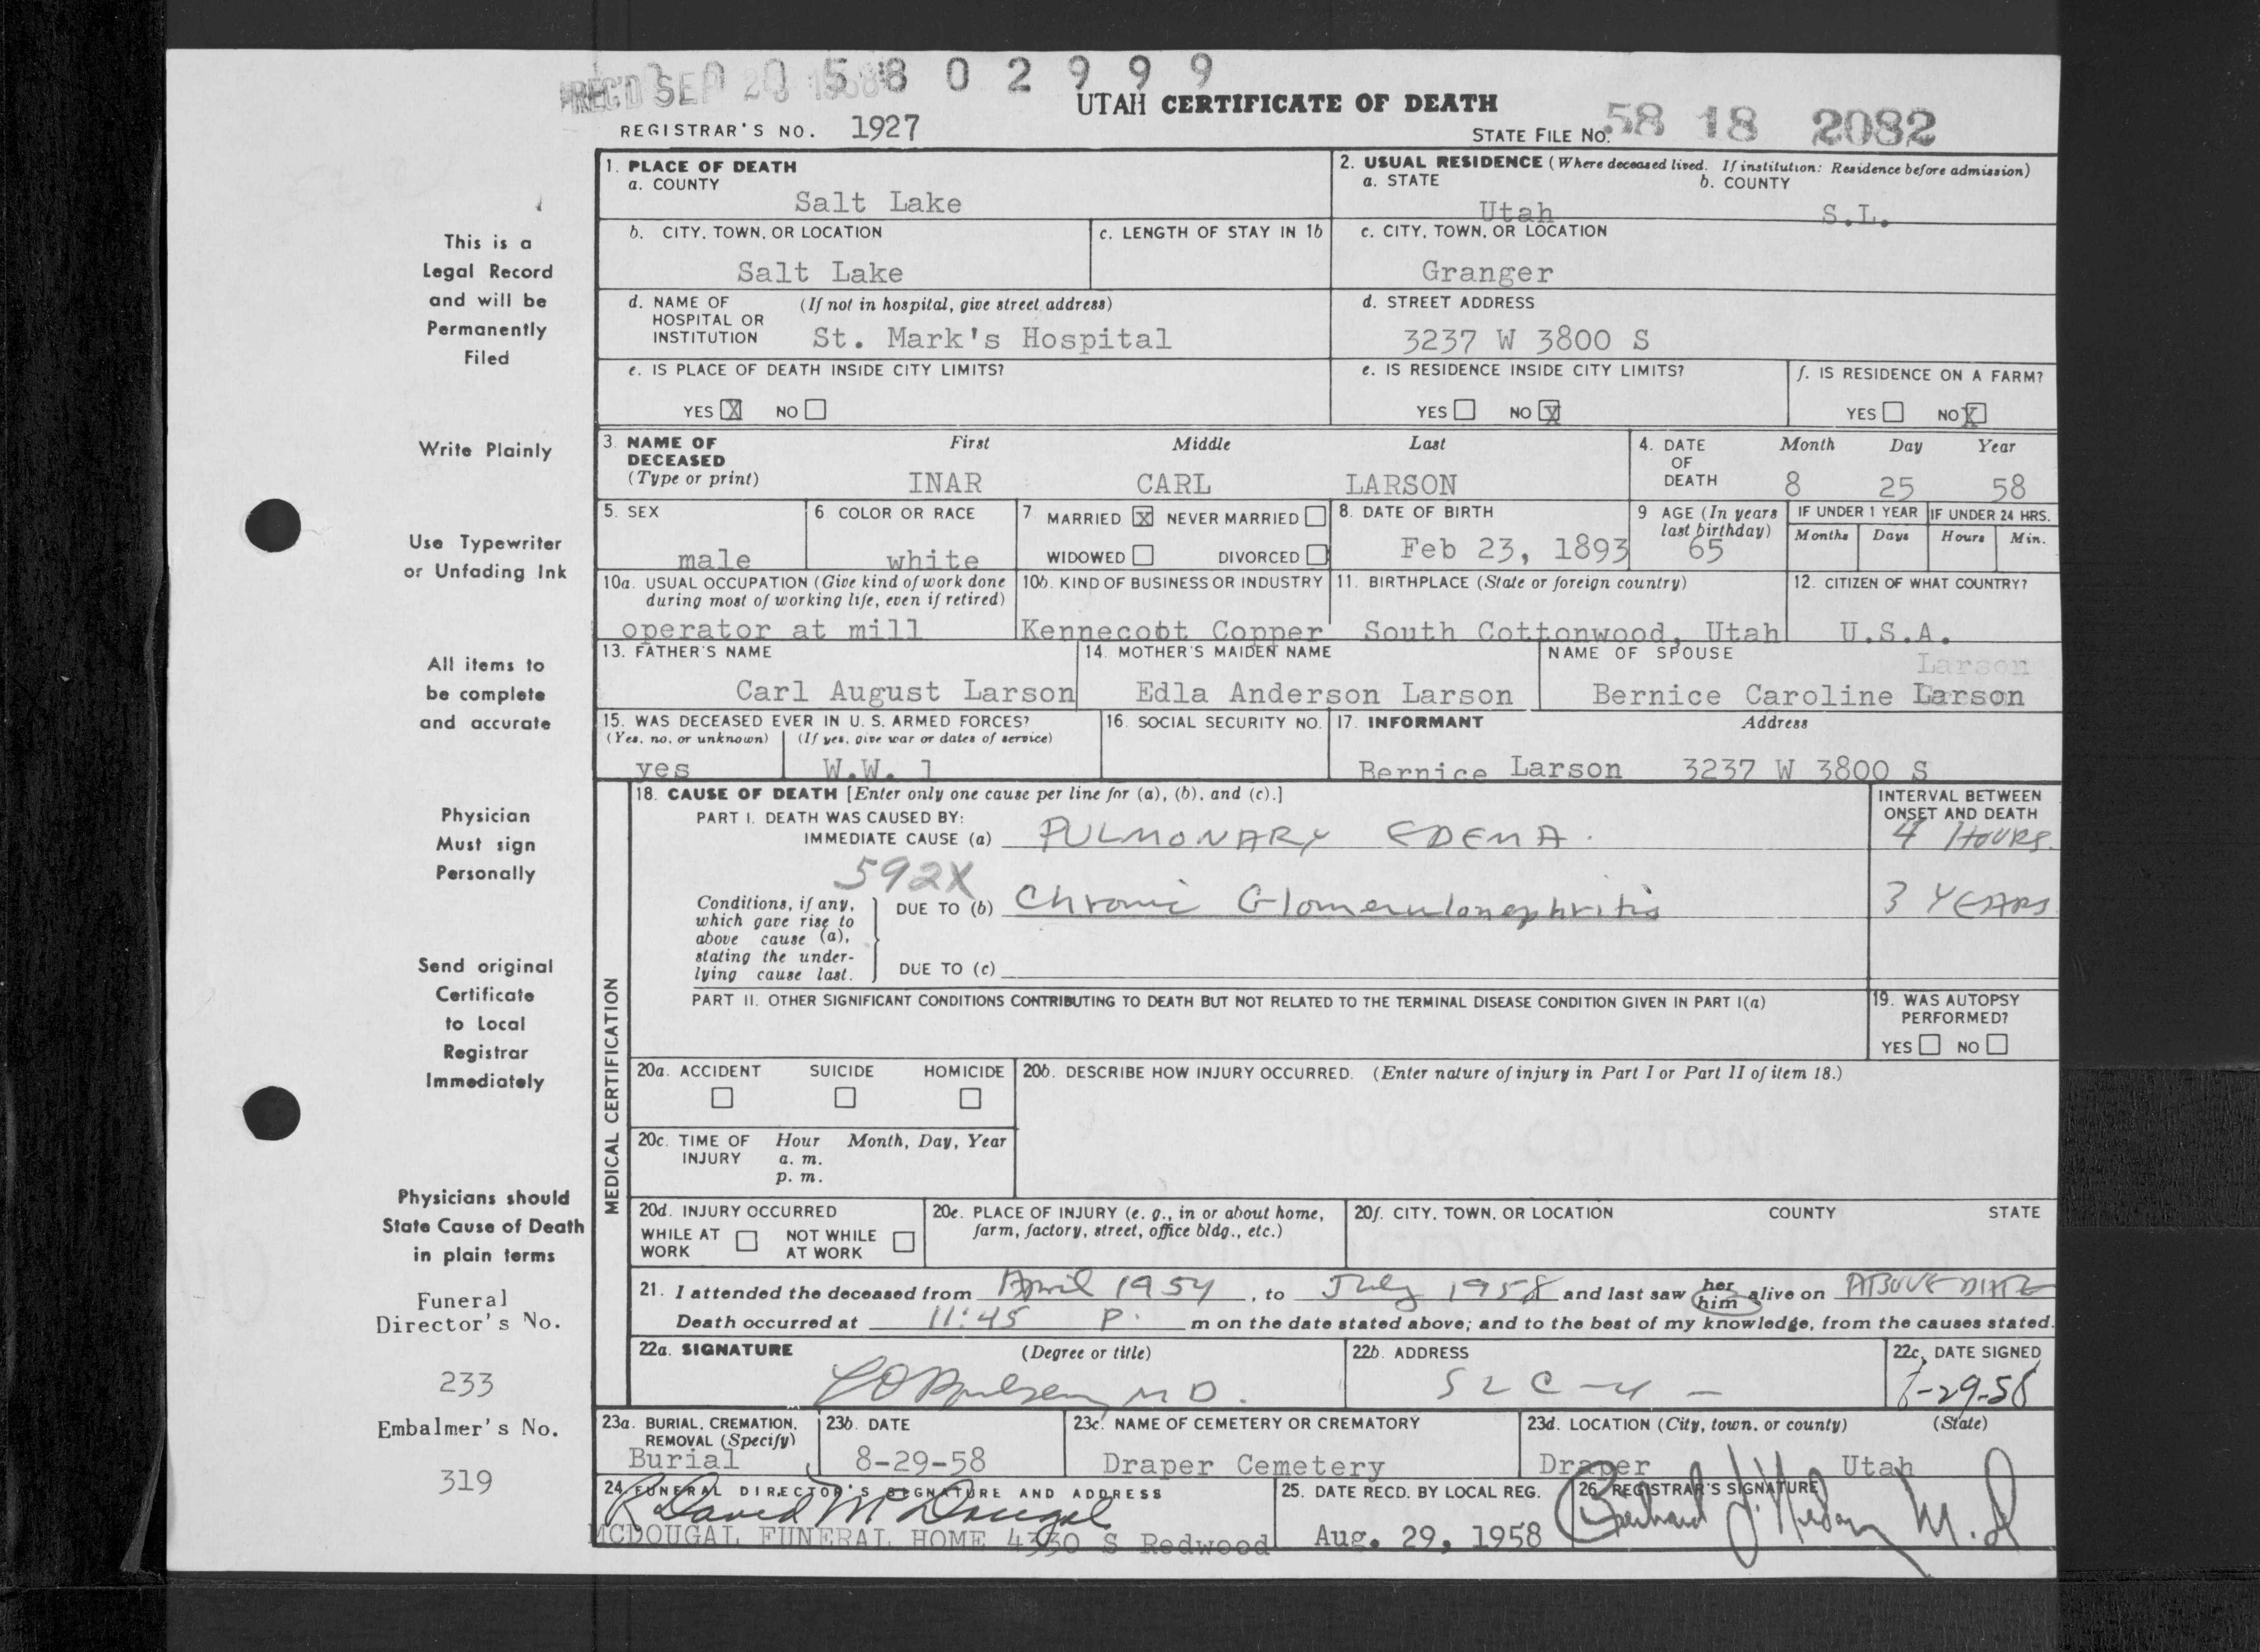 REC'D SEP 58 0 2 9 9 9
UTAH CERTIFICATE OF DEATH
REGISTRAR'S NO. 1927
STATE FILE NO. 58 18 2082
This is a
Legal Record
and will be
Permanently
Filed
Write Plainly
Use Typewriter
or Unfading Ink
All items to
be complete
and accurate
Physician
Must sign
Personally
Send original
Certificate
to Local
Registrar
Immediately
Physicians should
State Cause of Death
in plain terms
Funeral
Director's No.
233
Embalmer's No.
319
1. PLACE OF DEATH
a. COUNTY
Salt Lake
b. CITY, TOWN, OR LOCATION
Salt Lake
c. LENGTH OF STAY IN 1b
d. NAME OF HOSPITAL OR INSTITUTION (If not in hospital, give street address)
St. Mark's Hospital
e. IS PLACE OF DEATH INSIDE CITY LIMITS?
YES X NO
2. USUAL RESIDENCE (Where deceased lived. If institution: Residence before admission)
a. STATE b. COUNTY
Utah S.L.
c. CITY, TOWN, OR LOCATION
Granger
d. STREET ADDRESS
3237 W 3800 S
e. IS RESIDENCE INSIDE CITY LIMITS?
YES NO X
f. IS RESIDENCE ON A FARM?
YES NO X
3. NAME OF DECEASED (Type or print)
First Middle Last
INAR CARL LARSON
4. DATE OF DEATH
Month Day Year
8 25 58
5. SEX
male
6. COLOR OR RACE
white
7 MARRIED X NEVER MARRIED
WIDOWED DIVORCED
8. DATE OF BIRTH
Feb 23, 1893
9 AGE (In years last birthday)
65
IF UNDER 1 YEAR
Months Days
IF UNDER 24 HRS.
Hours Min.
10a. USUAL OCCUPATION (Give kind of work done during most of working life, even if retired)
operator at mill
10b. KIND OF BUSINESS OR INDUSTRY
Kennecott Copper
11. BIRTHPLACE (State or foreign country)
South Cottonwood, Utah
12. CITIZEN OF WHAT COUNTRY?
U.S.A.
13. FATHER'S NAME
Carl August Larson
14. MOTHER'S MAIDEN NAME
Edla Anderson Larson
NAME OF SPOUSE
Larson
Bernice Caroline Larson
15. WAS DECEASED EVER IN U. S. ARMED FORCES?
(Yes, no, or unknown) (If yes, give war or dates of service)
yes W.W. 1
16. SOCIAL SECURITY NO.
17. INFORMANT Address
Bernice Larson 3237 W 3800 S
MEDICAL CERTIFICATION
18. CAUSE OF DEATH [Enter only one cause per line for (a), (b), and (c).]
INTERVAL BETWEEN ONSET AND DEATH
PART I. DEATH WAS CAUSED BY:
IMMEDIATE CAUSE (a) PULMONARY EDEMA. 4 HOURS.
592X
Conditions, if any, which gave rise to above cause (a), stating the underlying cause last.
DUE TO (b) Chronic Glomerulonephritis 3 YEARS
DUE TO (c)
PART II. OTHER SIGNIFICANT CONDITIONS CONTRIBUTING TO DEATH BUT NOT RELATED TO THE TERMINAL DISEASE CONDITION GIVEN IN PART I(a)
19. WAS AUTOPSY PERFORMED?
YES NO
20a. ACCIDENT SUICIDE HOMICIDE
20b. DESCRIBE HOW INJURY OCCURRED. (Enter nature of injury in Part I or Part II of item 18.)
20c. TIME OF INJURY Hour Month, Day, Year
a. m.
p. m.
20d. INJURY OCCURRED
WHILE AT WORK NOT WHILE AT WORK
20e. PLACE OF INJURY (e. g., in or about home, farm, factory, street, office bldg., etc.)
20f. CITY, TOWN, OR LOCATION COUNTY STATE
21. I attended the deceased from April 1954, to July 1958 and last saw her him alive on ABOVE DATE
Death occurred at 11:45 P. m on the date stated above; and to the best of my knowledge, from the causes stated.
22a. SIGNATURE (Degree or title)
M D.
22b. ADDRESS
SLC-4-
22c. DATE SIGNED
-29-58
23a. BURIAL, CREMATION, REMOVAL (Specify)
Burial
23b. DATE
8-29-58
23c. NAME OF CEMETERY OR CREMATORY
Draper Cemetery
23d. LOCATION (City, town, or county) (State)
Draper Utah
24. FUNERAL DIRECTOR'S SIGNATURE AND ADDRESS
R David McDougal
MCDOUGAL FUNERAL HOME 4330 S Redwood
25. DATE RECD. BY LOCAL REG.
Aug. 29, 1958
26. REGISTRAR'S SIGNATURE
M. D